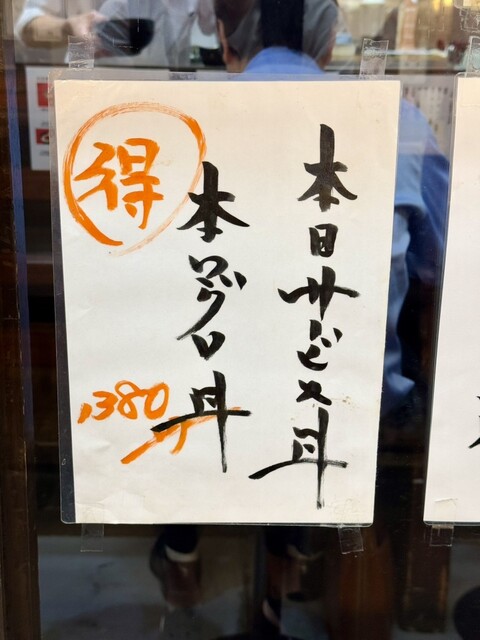 本日サービス丼
本マグロ丼
得
1380